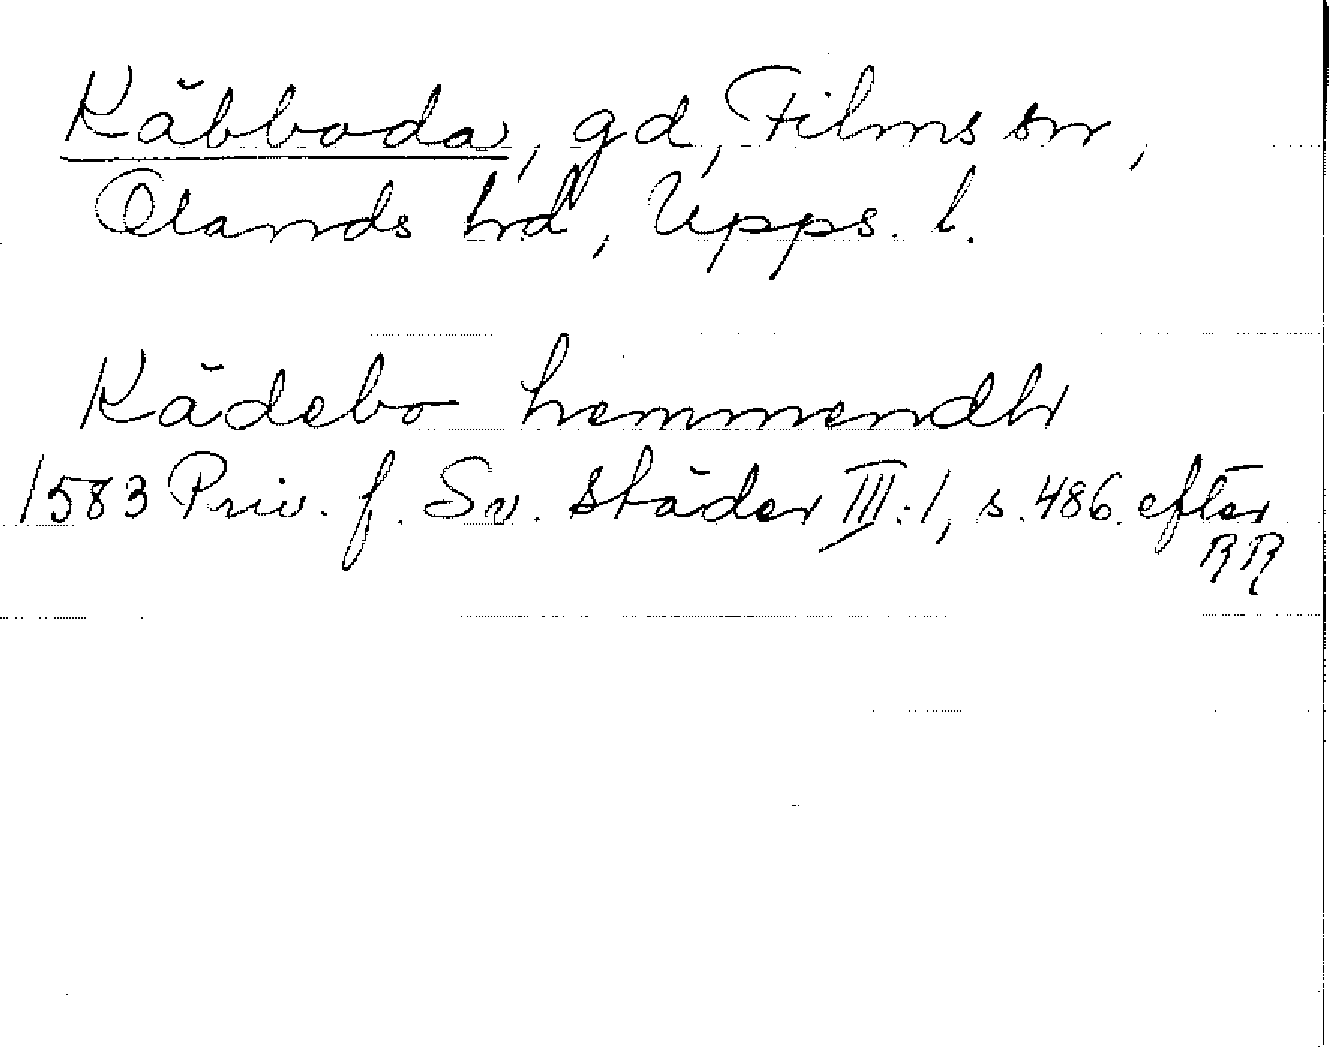 Käbboda, gd, Films sn,
Olands hd, Upps. l.
Kädebo hemmendh
1583 Priv. f. Sv. städer III:1, s. 486. efter
RR